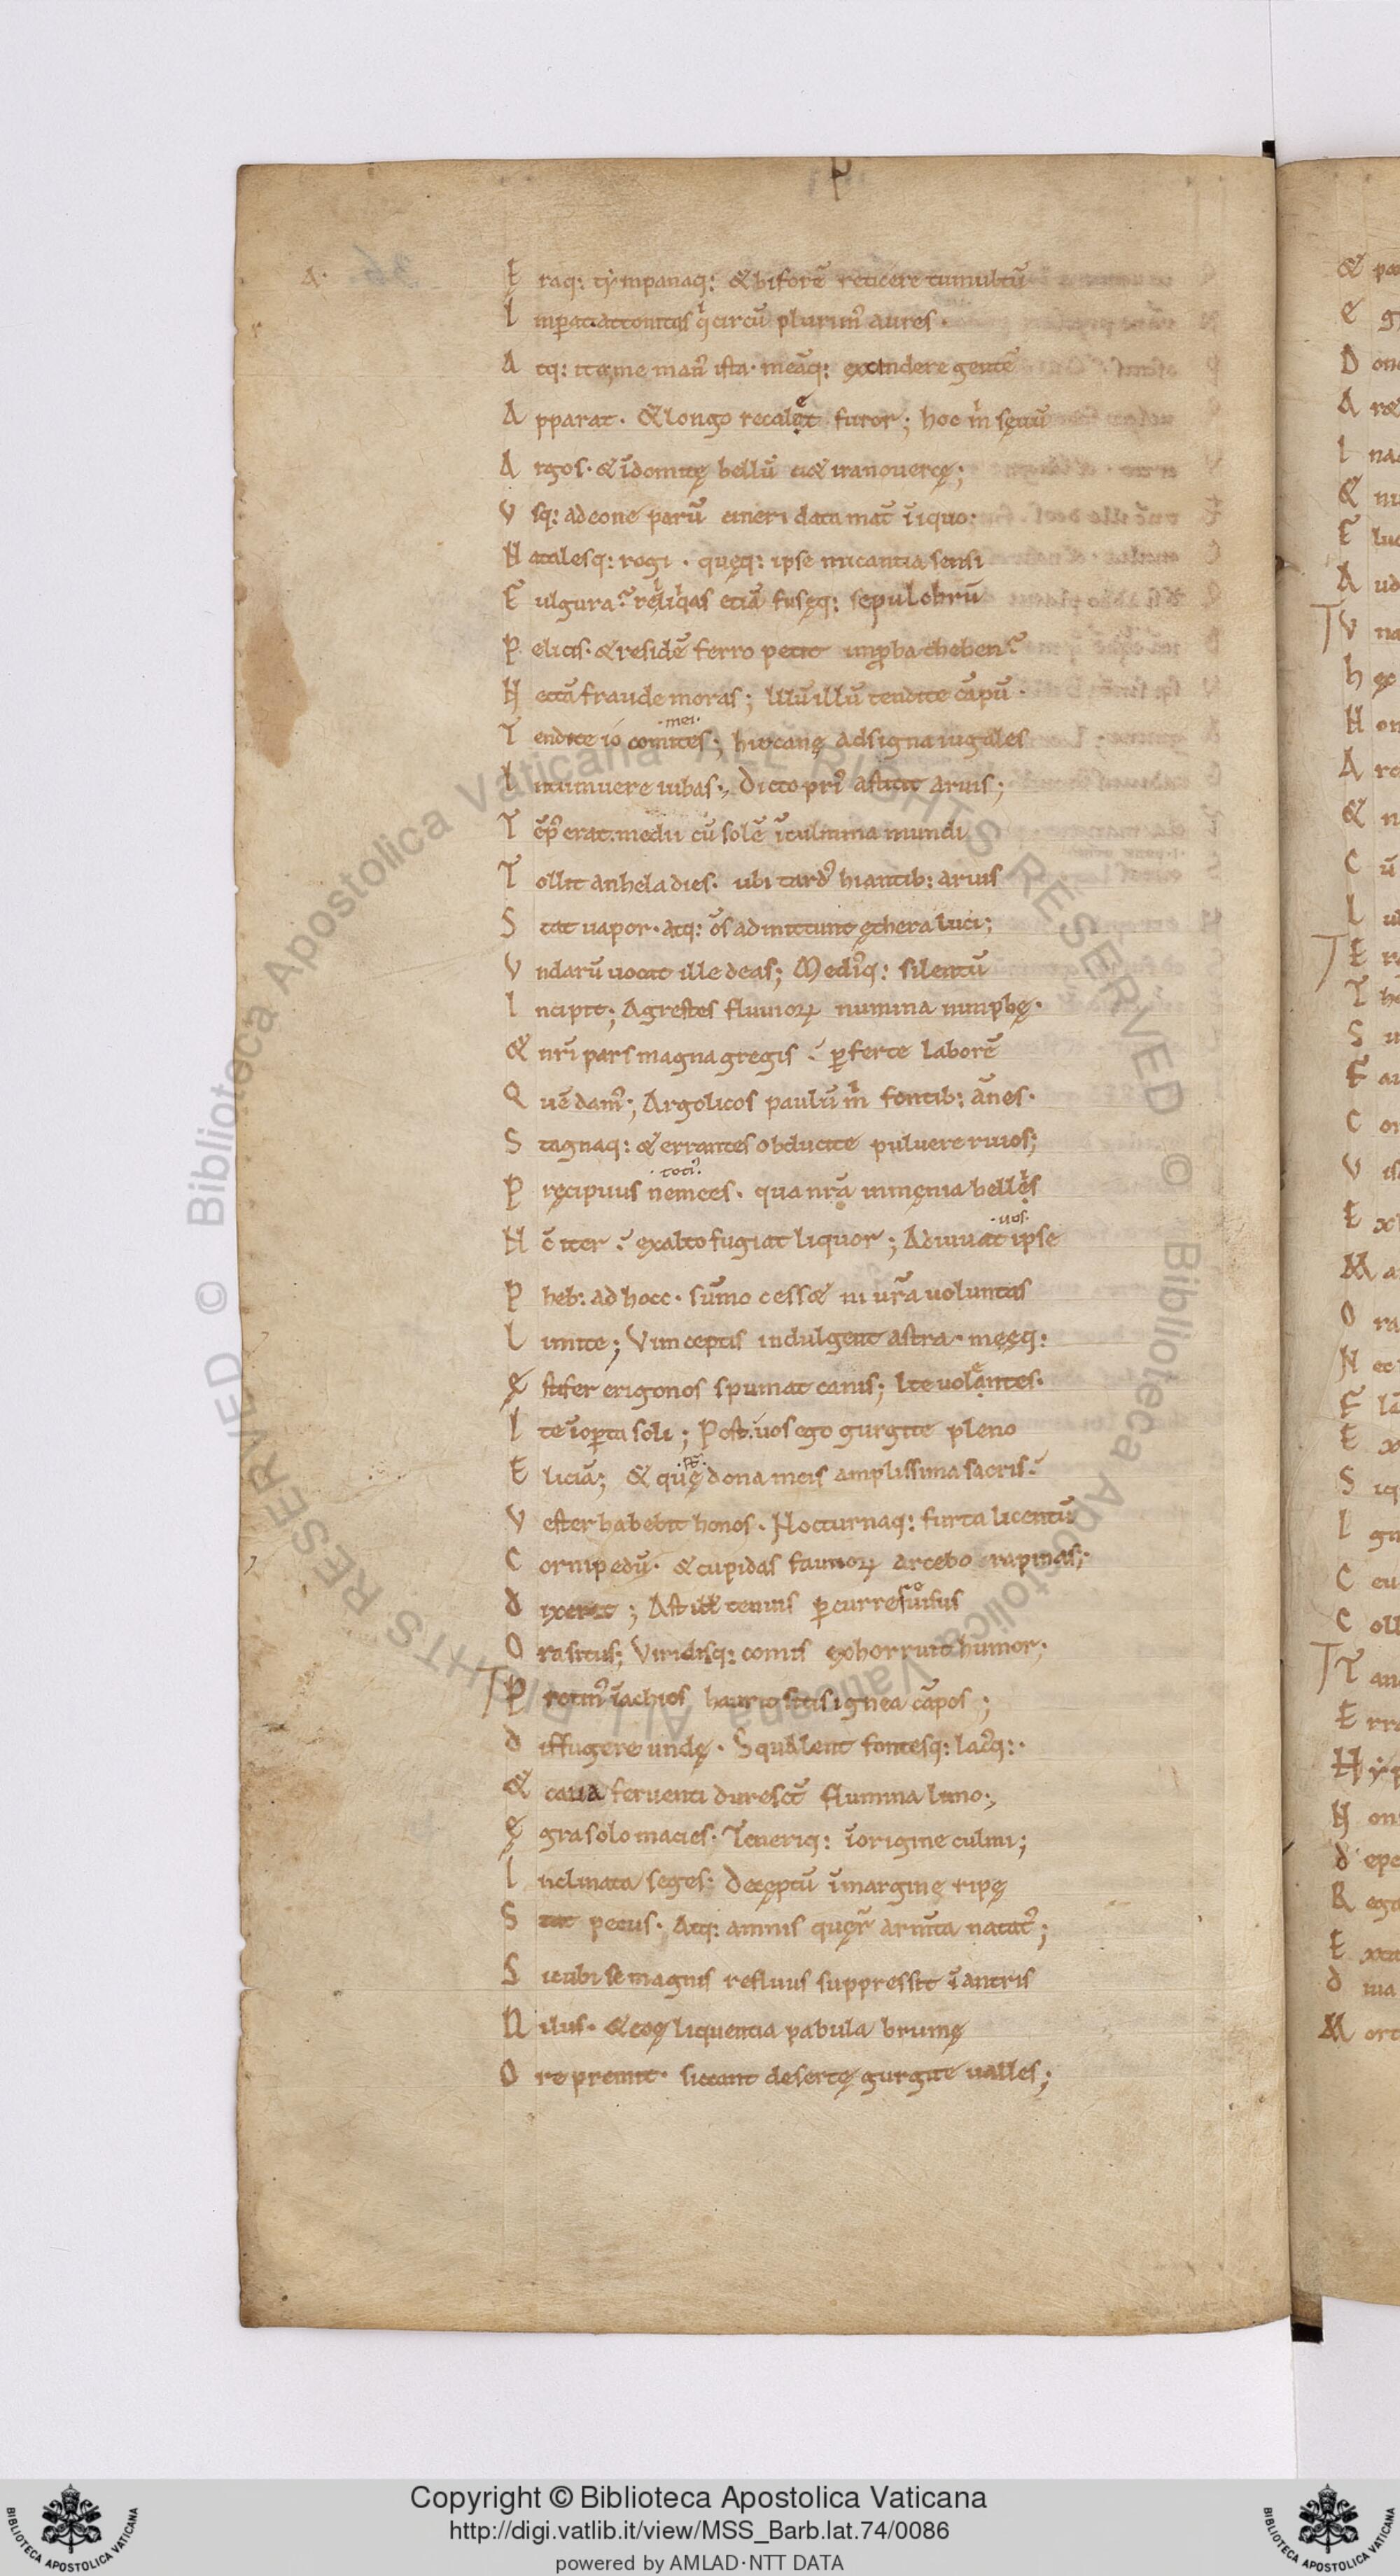 E raq: tẏmpanaq: & biforē reticere tumultū
I mp̄at attonitas qͥ circū plurim᷒ aures ·
A tq: ita, me man᷒ ista · meāq: exscindere gentē
A pparat · & longo recalet furor ; hoc m̄ sęuū
A rgos · & īdomitę bellū ciet ira nouercę ;
V sq: adeone parū cineri data mat̄ īiquo ·
N atalesq: rogi · quęq: ipse micantia sensi
F ulgura? reliqͥas etiā fusęq: sepulchrū
P elicis · & residē ferro petit improba theben?
N ectā fraude moras ; Illū illū tendite cāpū ·
·mei·
T endite io comites ; hircanę ad signa iugales
I ntumuere iubas · Dicto pri᷒ astitit aruis ;
T ēp᷒ erat · medii cū solē ī culmina mundi
T ollit anhela dies · ubi tard᷒ hiantib: aruis
S tat uapor · atq: ōs admittunt ęthera luci ;
V ndarū uocat ille deas ; Medi᷒q: silentū
I ncipit ; Agrestes fluuioꝝ numina nimphę ·
& nr̄i pars magna gregis ? ꝑferte laborē
Q uē dam᷒ ; Argolicos paulū m̄ fontib: āнes ·
S tagnaq: & errantes obducite puluere riuos ;
·toti᷒·
P ręcipuus nemees · qua nr̄a in męnia bellis
·uos·
N c̄ iter ? ex alto fugiat liquor ; Adiuuat ipse
P heb: ad hoc c · sūmo cesset ni ur̄a uoluntas
L imite ; Vim ceptis indulgent astra · męęq:
Ę stifer erigonos spumat canis ; Ite uolentes ·
I te ī oꝑta soli ; Post uos ego gurgite pleno
E liciā ; & quę dona meis amplissima sacris?
V ester habebit honos · Nocturnaq: furta licentū
C ornipedū · & cupidas faunoꝝ arcebo rapinas ;
d ixerat ; Ast illis tenuis ꝑcurre ūisus
O ra situs ; Viridisq: comis exhorruit humor ;
P rotin᷒ īachios haurit sitis ignea cāpos ;
d iffugere undę · Squalent fontesq: lac᷒q: ·
& caua feruenti duresct̄ flumina limo ·
Ę gra solo macies · Teneriq: ī origine culmi ;
I nclinata seges · Deceptū ī margine ripę
S tat pecus · Atq: amnis quęr̄ arm̄ta natat᷒ ;
S ic ubi se magnis refluus suppressit ī antris
N ilus · & eoę liquentia pabula brumę
O re premit · siccant desertę gurgite ualles ;
Copyright © Biblioteca Apostolica Vaticana
http://digi.vatlib.it/view/MSS_Barb.lat.74/0086
powered by AMLAD·NTT DATA